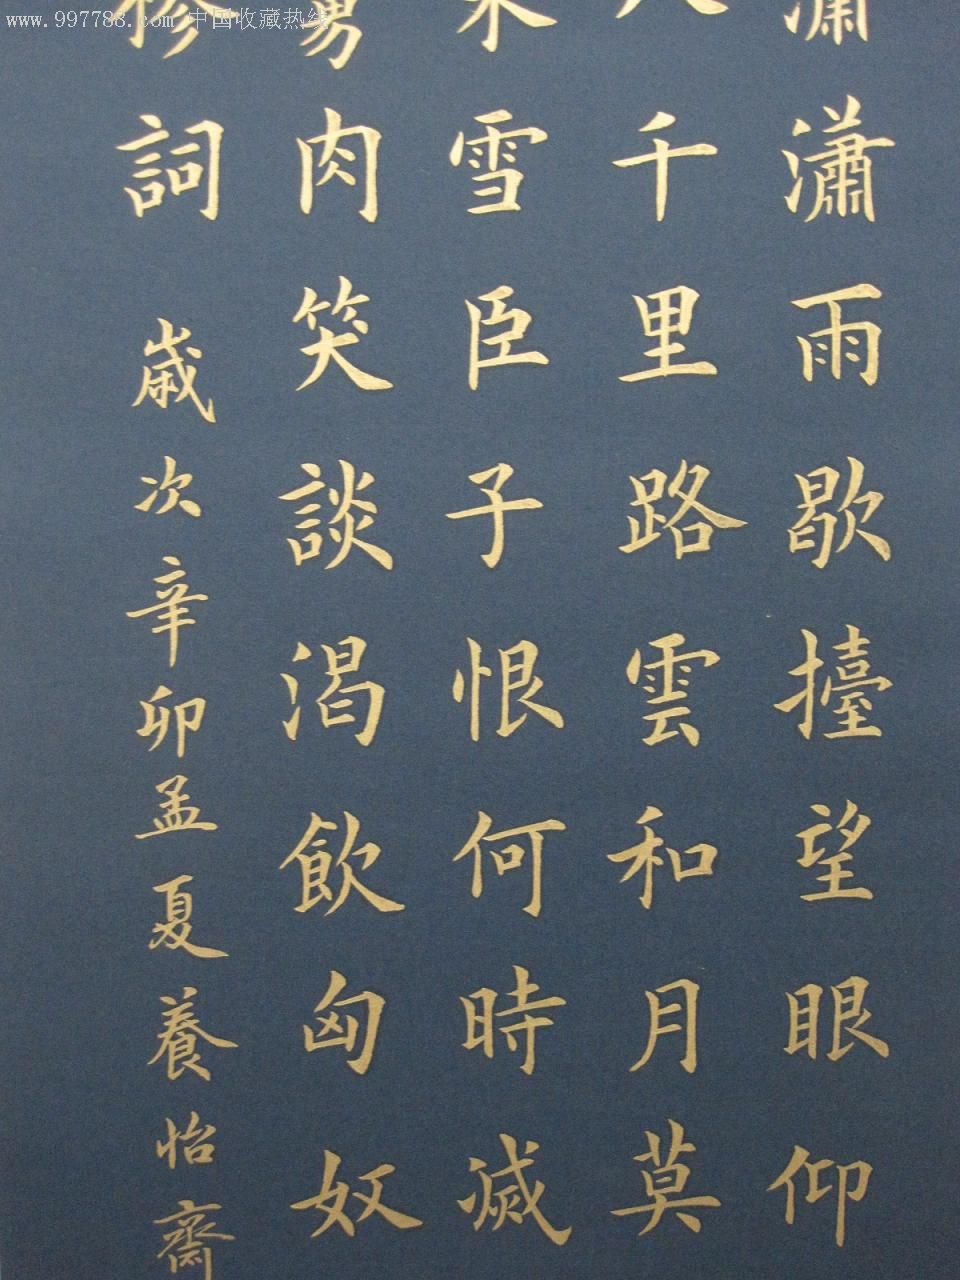 www.997788.com 中国收藏热线
瀟瀟雨歇擡望眼仰
千里路雲和月莫
雪臣子恨何時滅
肉笑談渴飲匈奴
詞 歲次辛卯孟夏養怡齋